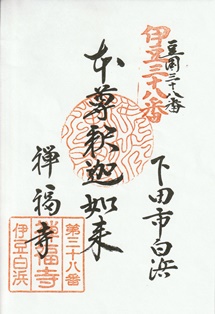 伊豆三十八番
豆国三十八番
下田市白浜
本尊釈迦如来
禅福寺
第三十八番
禅福寺
伊豆白浜